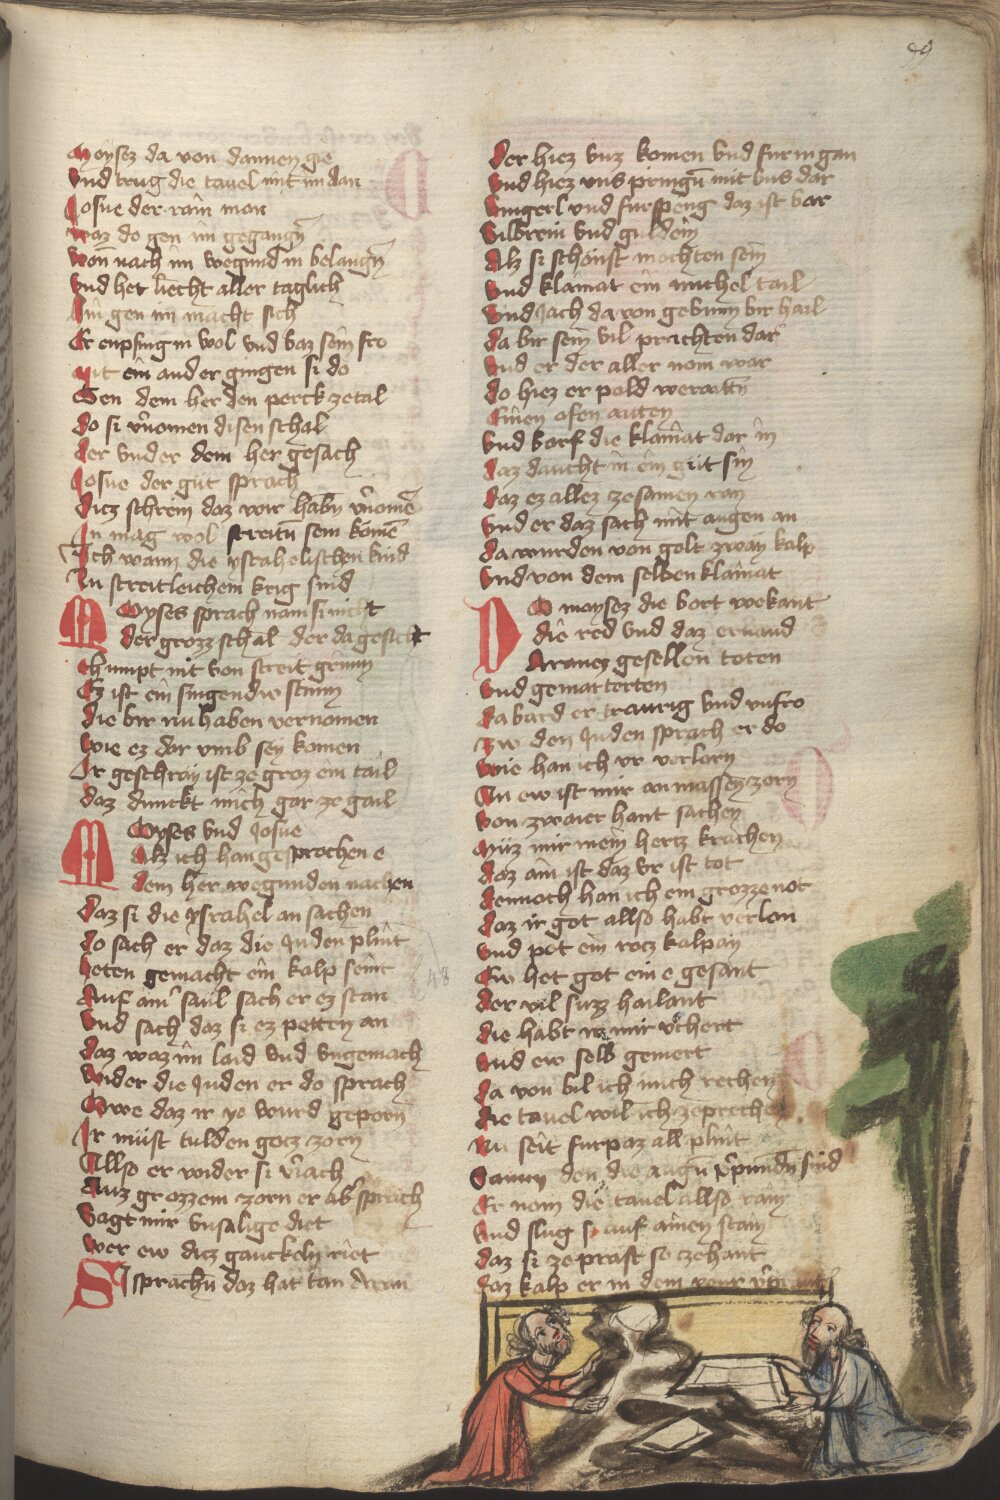 99
Moysez da von dannen gie
Vnd trug die tauel mit im dan
Josue der rain man
waz do gen im gegangn
Won nach im wegund in belangn
Vnd het liecht aller taglich
Im gen im macht sich
Er enpfing in wol vnd baz sein fro
Mit ein ander gingen si do
Gen dem her den perck zetal
do si v'nomen disen schal
der vnder dem her gesach
Josue der gut sprach
dicz schrein daz wir habn v'nome
In mag wol streitn sein komen
Ich wann die ysrahelischen kind
In streitleichem krig sind
Moyses sprach nain si nicht
der grozz schal der da geschit
chumpt nit von streit grimm
Ez ist ein singendw stimm
die bir nu haben vernomen
wie ez dar vmb sey komen
Ir geschray ist ze groz ein tail
daz dunckt mich gar ze gail
Moyses vnd Josue
Alz ich han gesprochen e
dem her wegunden nachen
daz si die ysrahel an sachen
do sach er daz die Juden plint
heten gemacht ein kalp seint
Auf ain' saul sach er ez stan
Vnd sach daz si ez petten an
daz waz im laid vnd vngemach
wider die Juden er do sprach
Owe daz ir ye wurd geporn
Ir müst tulden gotz zorn
Allso er wider si v'iach
Auz grozzem zorn er ab' sprach
Sagt mir vnsalige diet
wer ew dicz gauckeln riet
Si sprachn daz hat tan Aran
der hiez vnz komen vnd fur in gan
Vnd hiez vns pringn mit vns dar
vingerl vnd furspeng daz ist bar
Silbrein vnd guldein
Alz si schonst mochten sein
vnd klainat ein michel tail
vnd Jach da von gebunn bir hail
da bir sein vil prachten dar
vnd er der aller nom war
do hiez er pald
Einen ofen
vnd borf die klainat dar in
daz daucht in ein gut sin
daz ez allez zesamen ran
Vnd er daz sach mit augen an
da wurden von golt zway kalp
vnd von dem selben klainat
Do moysez die bort wekant
die red vnd daz ervand
Arancz gesellen toten
vnd gemarterten
da bard er traurig vnd vnfro
zw den Juden sprach er do
wie han ich vr verlorn
An ew ist mir an massen zorn
von zwaier hant sachen
Müz mir mein hertz krachen
daz ain ist daz vr ist tot
dennoch han ich ein grozze not
daz ir got allso habt verlan
vnd pet ein rocz kalp an
Ew het got ein e gesant
der vil suzz hailant
die habt ir mir v'chert
vnd ew selb gemert
da von bil ich mich rechen
die tauel wil ich zeprechen
Nu seit furpaz all plint
den die augn v'pundn sind
Er nom die tauel allso rain
vnd slug si auf ainen stain
daz si zeprast so zehant
daz kalp er in dem vewr v'prant